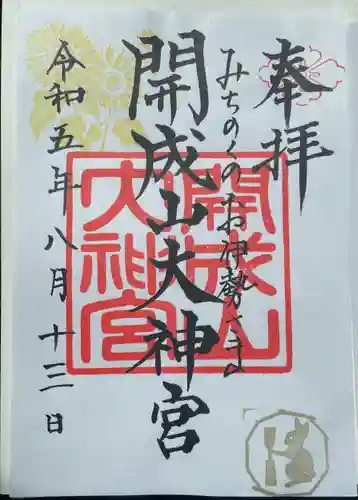 奉拝
みちのくのお伊勢さま
開成山大神宮
開成山
大神宮
令和五年八月十三日